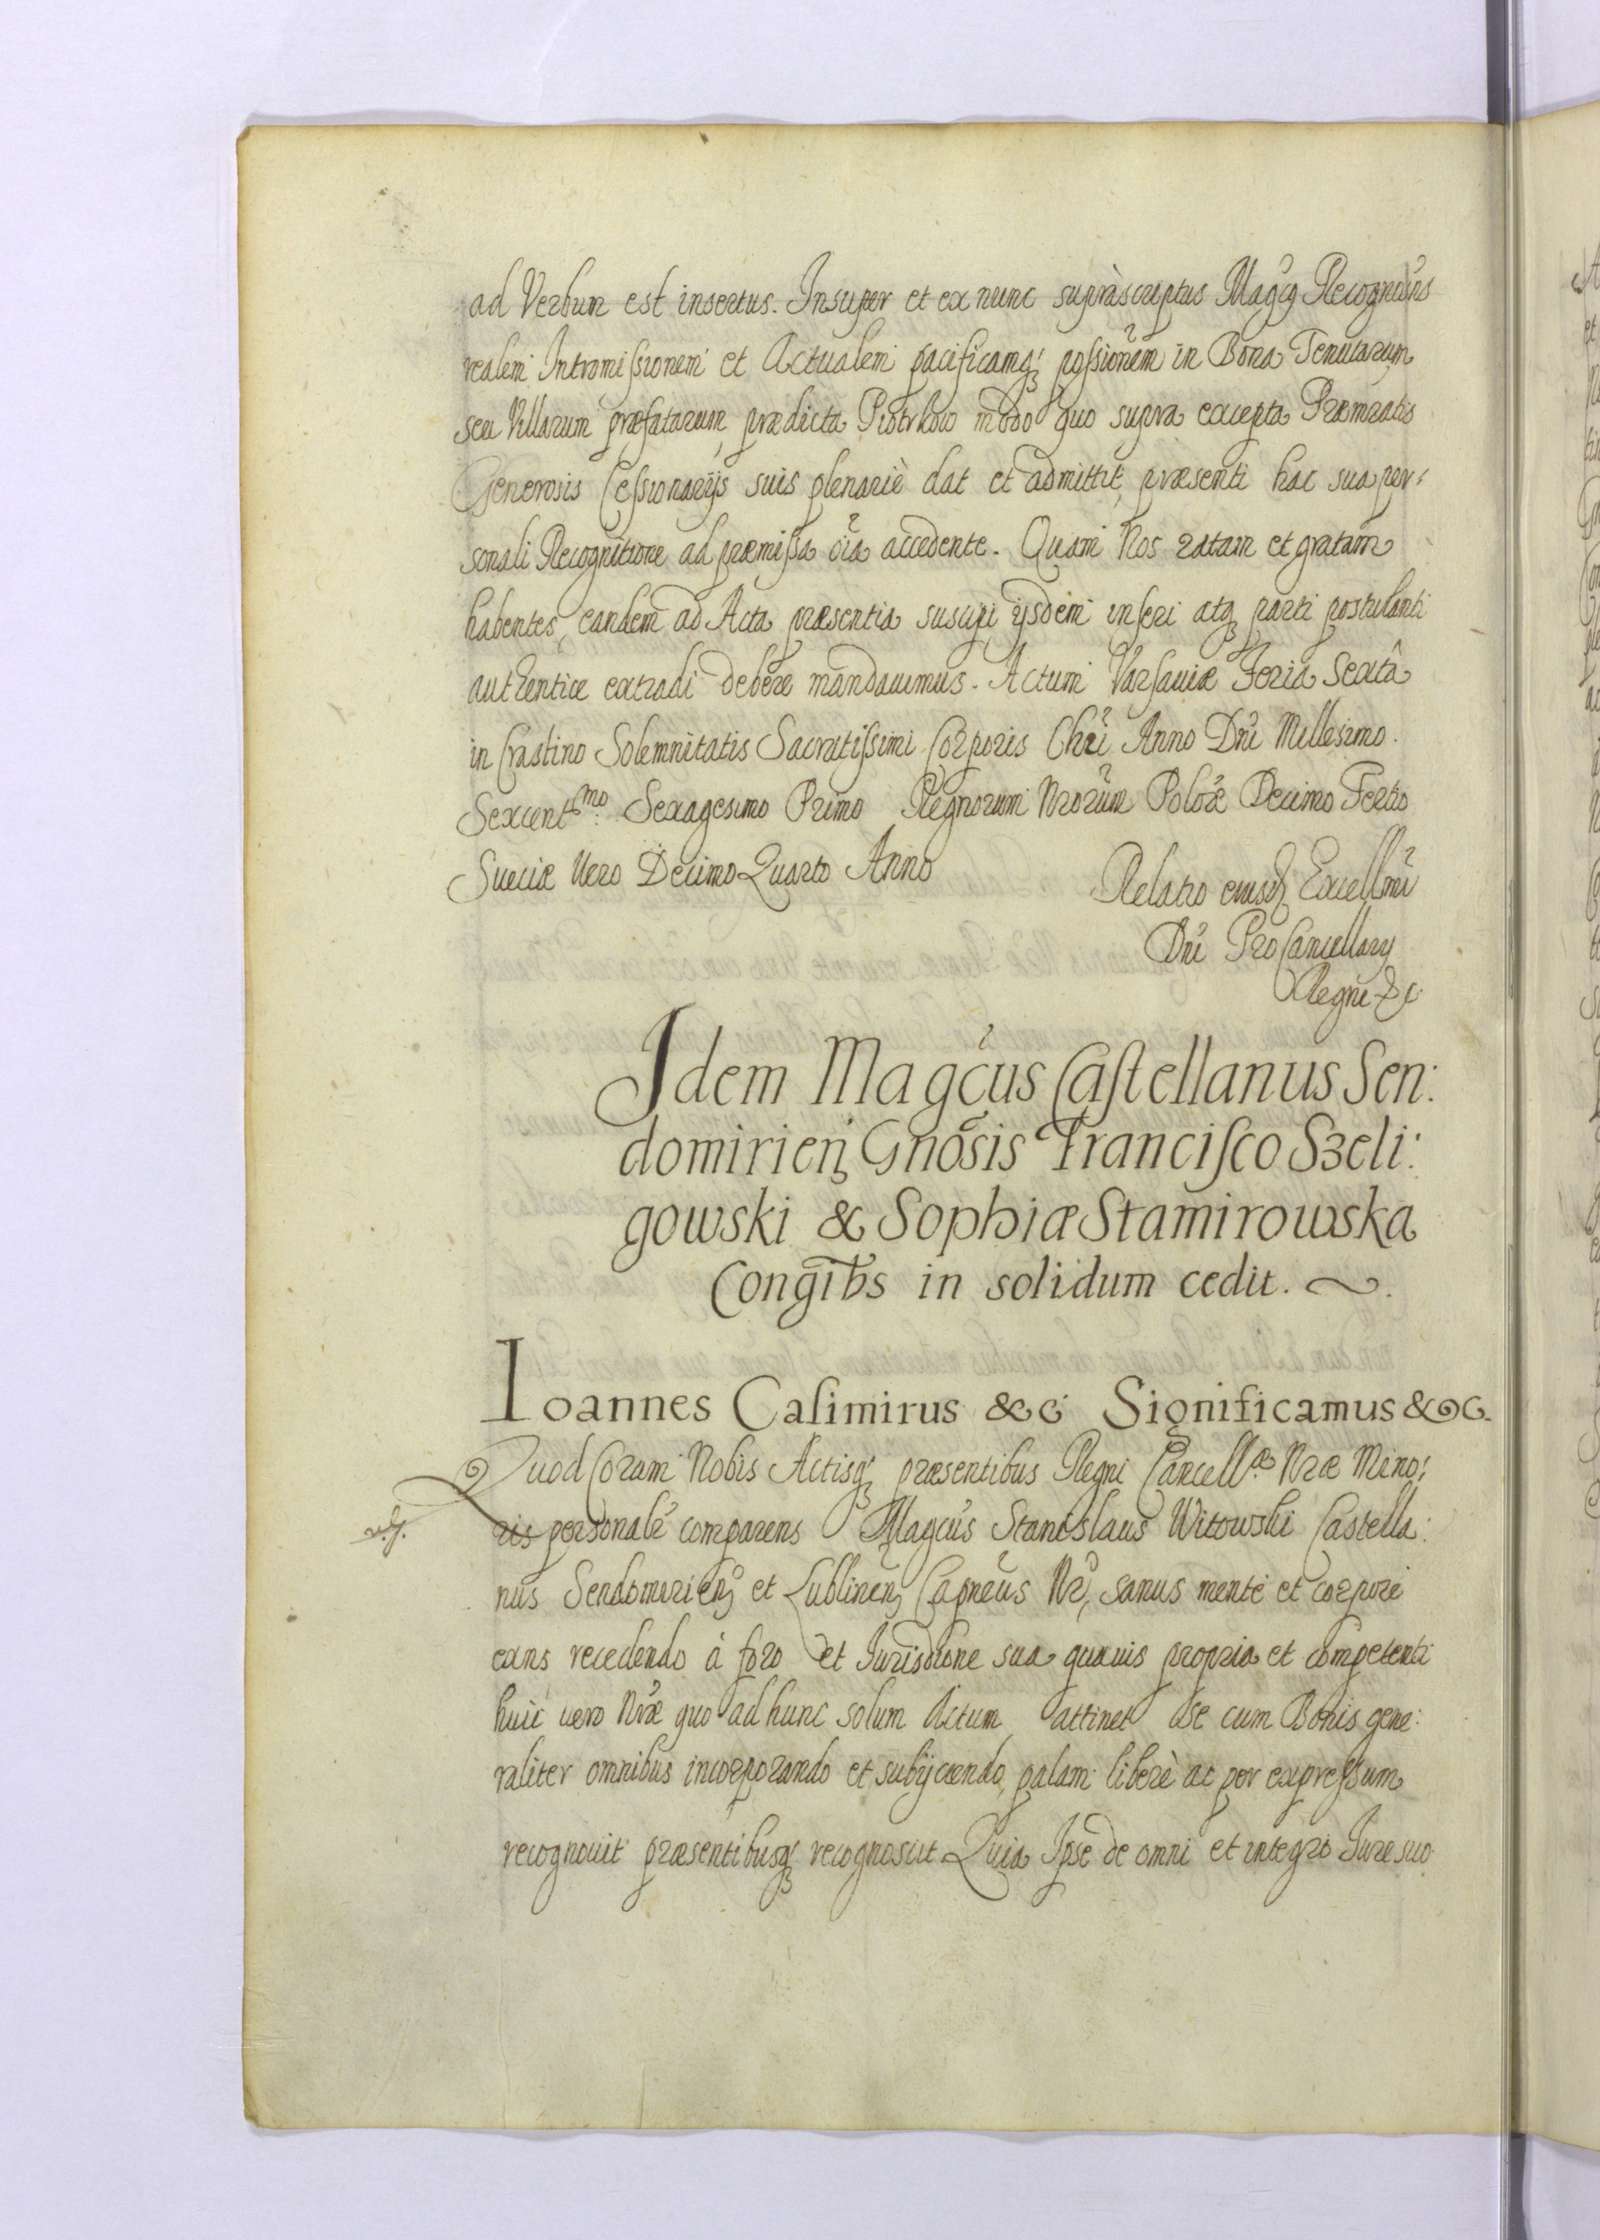 ad Verbum est insertus. Insuper et ex nunc supràscriptus Magcꝰ Recognoscens
realem Intromissionem et Actualem pacificamqꝫ possionem in Bona Tenutarum
seu Villarum præfatarum, prædicta Piotrkow modo quo supra excepta Præmratis
Generosis Cessionarijs suis plenariè dat et admittit, præsenti hac sua per:
sonali Recognitione ad præmissa oĩa accedente. Quam Nos ratam et gratam
habentes, eandem ad Acta præsentia suscipi ijsdem inseri atqꝫ parti postulanti
authentice extradi debere mandauimus. Actum Varsauiæ Feria Sextâ
in Crastino Solemnitatis Sacratissimi Corporis Chri Anno Dni Millesimo
Sexcentmo: Sexagesimo Primo Regnorum Nrorum Poloæ Decimo Tertio
Sueciæ Vero Decimo Quarto Anno
Relatio eiusd Excellmi
Dni ProCancellarij
Regni &c
Idem Magcus Castellanus Sen:
domirien Gnosis Francisco Szeli:
gowski & Sophiæ Stamirowska
Congibs in solidum cedit.
Ioannes Casimirus &c Significamus &c.
Quod Coram Nobis Actisqꝫ præsentibus Regni Cancellæ Nræ Mino:
ris personalr comparens Magcus Stanislaus Witowski Castella:
nus Sendomirien et Lublinen Capneus Nr, sanus mente et corpore
exns recedendo à foro et Iurisdione sua quauis propria et competenti
huic vero Nræ quo ad hunc solum Actum attinet se cum Bonis gene:
raliter omnibus incorporando et subijciendo, palam liberè ac per expressum
recognouit præsentibusqꝫ recognoscit Quia Ipse de omni et integro Iure suo